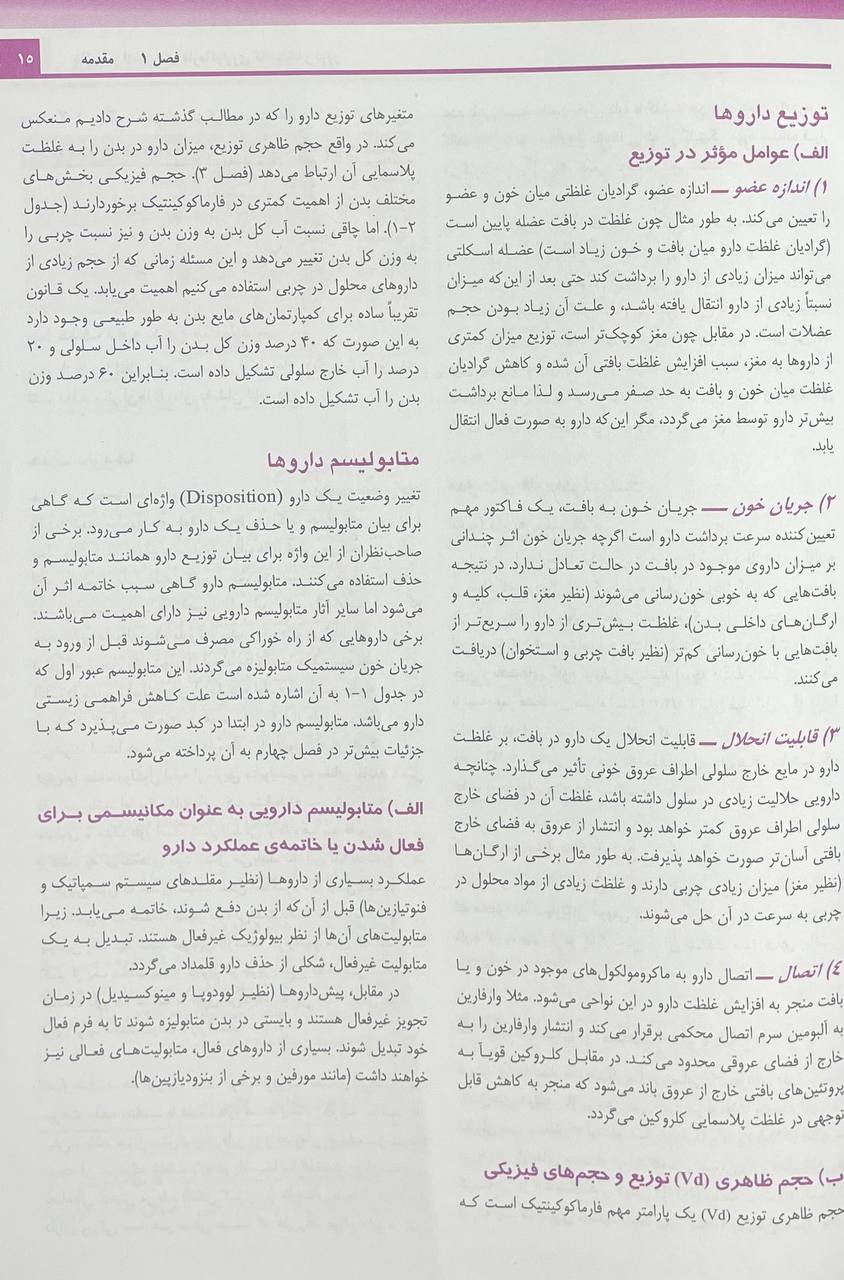 فصل ۱ مقدمه
۱۵
توزیع داروها
الف) عوامل مؤثر در توزیع
۱) اندازه عضو ــ اندازه عضو، گرادیان غلظتی میان خون و عضو
را تعیین می‌کند. به طور مثال چون غلظت در بافت عضله پایین است
(گرادیان غلظت دارو میان بافت و خون زیاد است) عضله اسکلتی
می‌تواند میزان زیادی از دارو را برداشت کند حتی بعد از این‌که میزان
نسبتاً زیادی از دارو انتقال یافته باشد، و علت آن زیاد بودن حجم
عضلات است. در مقابل چون مغز کوچک‌تر است، توزیع میزان کمتری
از داروها به مغز، سبب افزایش غلظت بافتی آن شده و کاهش گرادیان
غلظت میان خون و بافت به حد صفر می‌رسد و لذا مانع برداشت
بیش‌تر دارو توسط مغز می‌گردد، مگر این‌که دارو به صورت فعال انتقال
یابد.
۲) جریان خون ــ جریان خون به بافت، یک فاکتور مهم
تعیین‌کننده سرعت برداشت دارو است اگرچه جریان خون اثر چندانی
بر میزان داروی موجود در بافت در حالت تعادل ندارد. در نتیجه
بافت‌هایی که به خوبی خون‌رسانی می‌شوند (نظیر مغز، قلب، کلیه و
ارگان‌های داخلی بدن)، غلظت بیش‌تری از دارو را سریع‌تر از
بافت‌هایی با خون‌رسانی کم‌تر (نظیر بافت چربی و استخوان) دریافت
می‌کنند.
۳) قابلیت انحلال ــ قابلیت انحلال یک دارو در بافت، بر غلظت
دارو در مایع خارج سلولی اطراف عروق خونی تأثیر می‌گذارد. چنانچه
دارویی حلالیت زیادی در سلول داشته باشد، غلظت آن در فضای خارج
سلولی اطراف عروق کمتر خواهد بود و انتشار از عروق به فضای خارج
بافتی آسان‌تر صورت خواهد پذیرفت. به طور مثال برخی از ارگان‌ها
(نظیر مغز) میزان زیادی چربی دارند و غلظت زیادی از مواد محلول در
چربی به سرعت در آن حل می‌شوند.
۴) اتصال ــ اتصال دارو به ماکرومولکول‌های موجود در خون و یا
بافت منجر به افزایش غلظت دارو در این نواحی می‌شود. مثلا وارفارین
به آلبومین سرم اتصال محکمی برقرار می‌کند و انتشار وارفارین را به
خارج از فضای عروقی محدود می‌کند. در مقابل کلروکین قویاً به
پروتئین‌های بافتی خارج از عروق باند می‌شود که منجر به کاهش قابل
توجهی در غلظت پلاسمایی کلروکین می‌گردد.
ب) حجم ظاهری (Vd) توزیع و حجم‌های فیزیکی
حجم ظاهری توزیع (Vd) یک پارامتر مهم فارماکوکینتیک است که
متغیرهای توزیع دارو را که در مطالب گذشته شرح دادیم منعکس
می‌کند. در واقع حجم ظاهری توزیع، میزان دارو در بدن را به غلظت
پلاسمایی آن ارتباط می‌دهد (فصل ۳). حجم فیزیکی بخش‌های
مختلف بدن از اهمیت کمتری در فارماکوکینتیک برخوردارند (جدول
۲-۱). اما چاقی نسبت آب کل بدن به وزن بدن و نیز نسبت چربی را
به وزن کل بدن تغییر می‌دهد و این مسئله زمانی که از حجم زیادی از
داروهای محلول در چربی استفاده می‌کنیم اهمیت می‌یابد. یک قانون
تقریباً ساده برای کمپارتمان‌های مایع بدن به طور طبیعی وجود دارد
به این صورت که ۴۰ درصد وزن کل بدن را آب داخل سلولی و ۲۰
درصد را آب خارج سلولی تشکیل داده است. بنابراین ۶۰ درصد وزن
بدن را آب تشکیل داده است.
متابولیسم داروها
تغییر وضعیت یک دارو (Disposition) واژه‌ای است که گاهی
برای بیان متابولیسم و یا حذف یک دارو به کار می‌رود. برخی از
صاحب‌نظران از این واژه برای بیان توزیع دارو همانند متابولیسم و
حذف استفاده می‌کنند. متابولیسم دارو گاهی سبب خاتمه اثر آن
می‌شود اما سایر آثار متابولیسم دارویی نیز دارای اهمیت می‌باشند.
برخی داروهایی که از راه خوراکی مصرف می‌شوند قبل از ورود به
جریان خون سیستمیک متابولیزه می‌گردند. این متابولیسم عبور اول که
در جدول ۱-۱ به آن اشاره شده است علت کاهش فراهمی زیستی
دارو می‌باشد. متابولیسم دارو در ابتدا در کبد صورت می‌پذیرد که با
جزئیات بیش‌تر در فصل چهارم به آن پرداخته می‌شود.
الف) متابولیسم دارویی به عنوان مکانیسمی برای
فعال شدن یا خاتمه‌ی عملکرد دارو
عملکرد بسیاری از داروها (نظیر مقلدهای سیستم سمپاتیک و
فنوتیازین‌ها) قبل از آن‌که از بدن دفع شوند، خاتمه می‌یابد. زیرا
متابولیت‌های آن‌ها از نظر بیولوژیک غیرفعال هستند. تبدیل به یک
متابولیت غیرفعال، شکلی از حذف دارو قلمداد می‌گردد.
در مقابل، پیش‌داروها (نظیر لوودوپا و مینوکسیدیل) در زمان
تجویز غیرفعال هستند و بایستی در بدن متابولیزه شوند تا به فرم فعال
خود تبدیل شوند. بسیاری از داروهای فعال، متابولیت‌های فعالی نیز
خواهند داشت (مانند مورفین و برخی از بنزودیازپین‌ها).